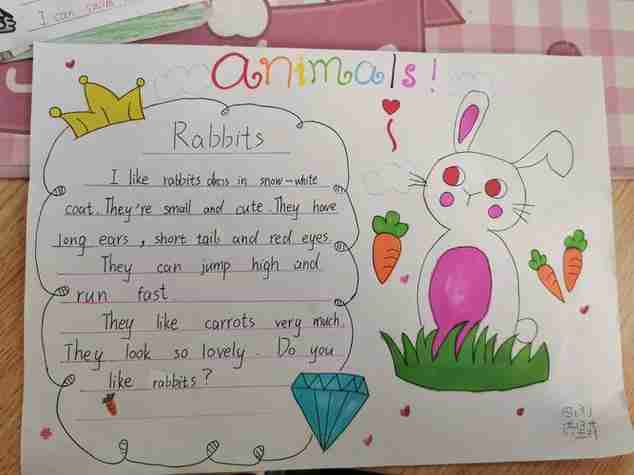 I can swim
animals!
Rabbits
I like rabbits dress in snow-white
coat. They're small and cute. They have
long ears, short tail and red eyes.
They can jump high and
run fast
They like carrots very much.
They look so lovely. Do you
like rabbits?